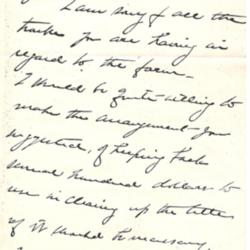 I am sorry of all the
trouble you are having in
regard to the farm.
I would be quite willing to
make the arrangement you
suggested, of keeping back
several hundred dollars to
use in clearing up the title
if it should be necessary.